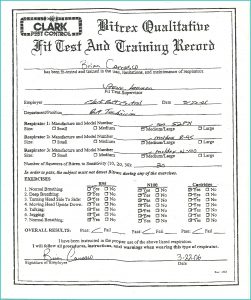 CLARK
PEST CONTROL
Bitrex Qualitative
Fit Test And Training Record
Brian
has been fit-tested and trained in the use, limitations, and maintenance of respirator.
Fit Test Supervisor
Employer Clark Pest Control Date
Department/Position Pest Technician
Respirator 1: Manufacture and Model Number
Size: Small Medium Medium/Large Large
Respirator 2: Manufacture and Model Number
Size: Small Medium Medium/Large Large
Respirator 3: Manufacture and Model Number
Size: Small Medium Medium/Large Large
Number of Squeezes of Bitrex to Sensitivity (10, 20, 30)
In order to pass, the subject must not detect Bitrex during any of these exercises.
EXERCISES:
N100 Cartridge
1. Normal Breathing Yes No Yes No Yes No
2. Deep Breathing Yes No Yes No Yes No
3. Turning Head Side To Side Yes No Yes No Yes No
4. Moving Head Upside Down Yes No Yes No Yes No
5. Talking Yes No Yes No Yes No
6. Jogging Yes No Yes No Yes No
7. Normal Breathing Yes No Yes No Yes No
OVERALL RESULTS: Pass Fail Pass Fail Pass Fail
I have been instructed in the proper use of the above listed respirators.
I will follow all procedures, instructions, and warnings when wearing this type of respirator.
Brian 3-22-06
Signature of Employee Date